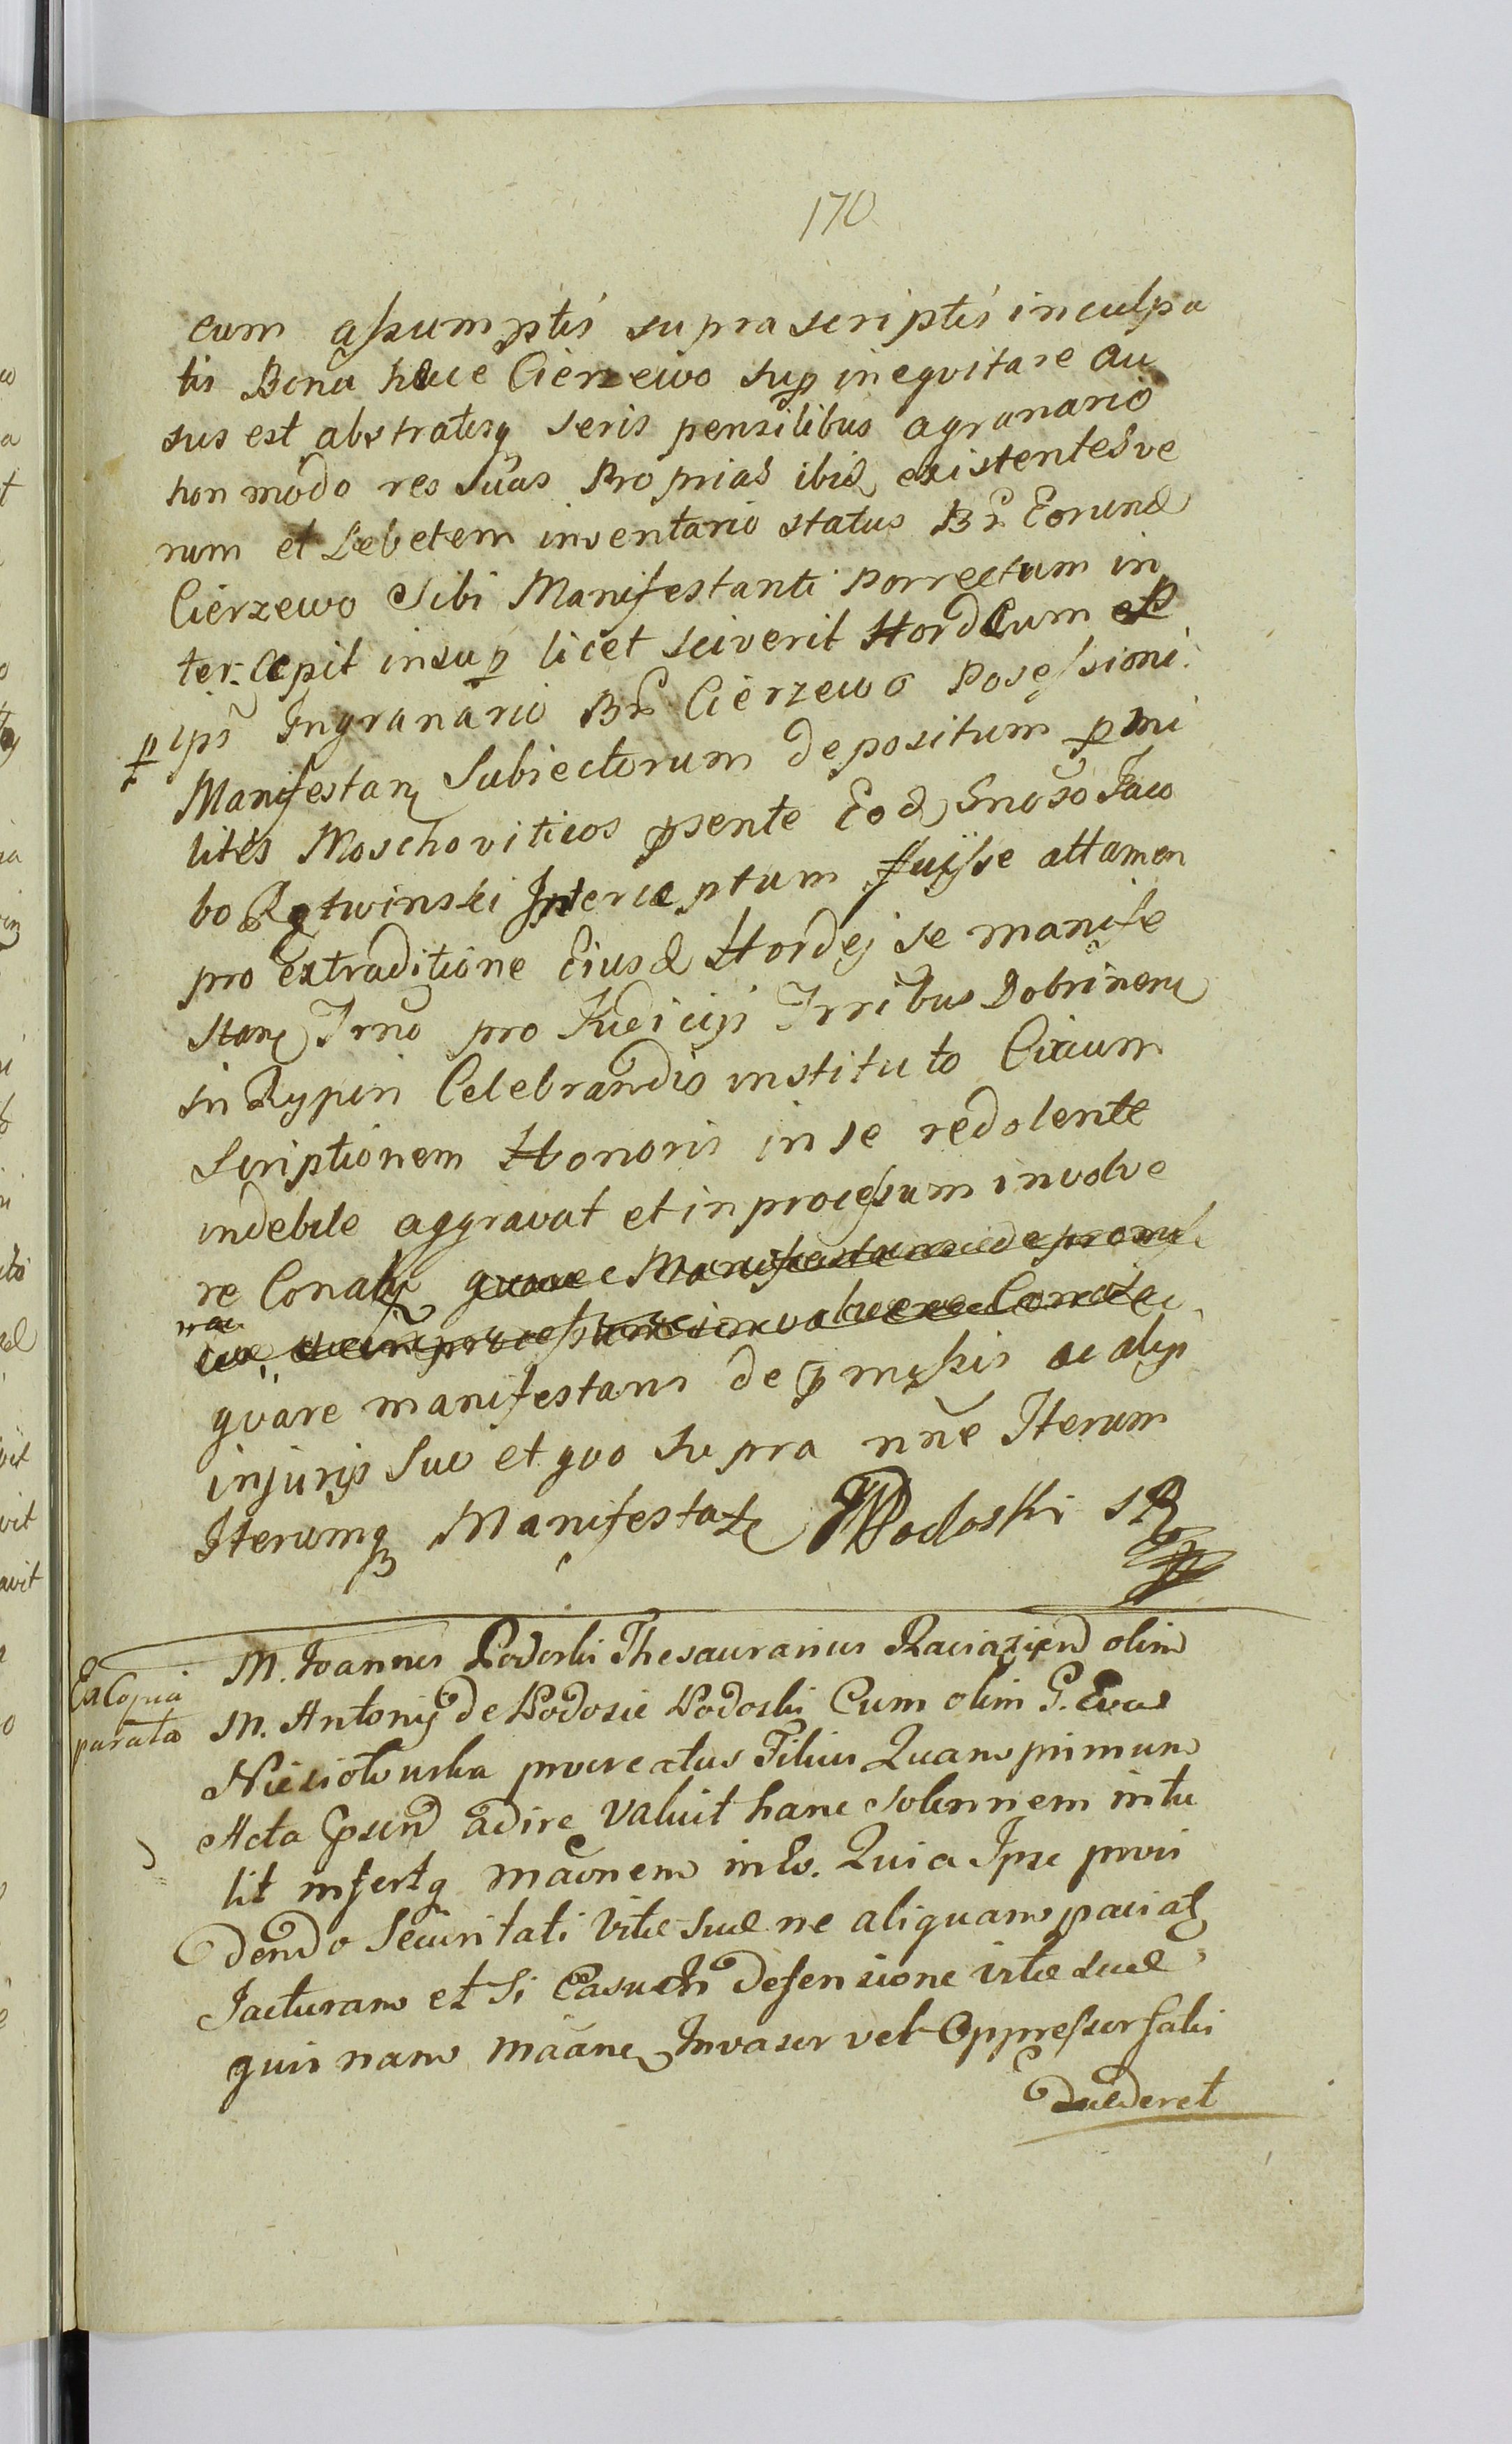 170
cum assumptis supra scriptis inculpa
tis Bona haec Cierzewo sup inequitare au
sus est abstratisq seris pensilibus a granario
non modo res suas Proprias ibid existentes ve
rum et Lebetem inventario status Br Eorund
Cierzewo Sibi Manifestanti porrectum in
ter-cepit insup licet sciverit Hordeum
ips In granario Br Cierzewo Possessioni
Manifestan Subiectorum depositum p mi
lites Moschoviticos psente Eod Gnoso Jaco
bo Rętwinski Interceptum fuisse attamen
pro extraditione Eiusd Hordej se manife
stan Trno pro Judicijs Trribus Dobrinen
in Rypin Celebrandis instituto Circum
scriptionem Honoris in se redolente
indebite aggravat et in processum involve
re Conat
quare manifestans de pmissis ac alijs
injurijs suo et quo supra nne Iterum
Iterumq Manifestat Podoski SR
M. Joannes Podoski Thesaurarius Raciązień olim
Ex Copia
parata
M. Antonij de Podosie Podoski Cum olim G. Eva
Niesiołowska procreatus Filius Quam primum
Acta psen adire valuit hanc solennem intu
lit infertq maonem in Eo. Quia Ipse provi
dendo Securitati Vitae suae ne aliquam paciat
Jacturam et Si Casu In defensione vitae suae
quis nam maane Invasor vel Oppressor sabi
Evaderet